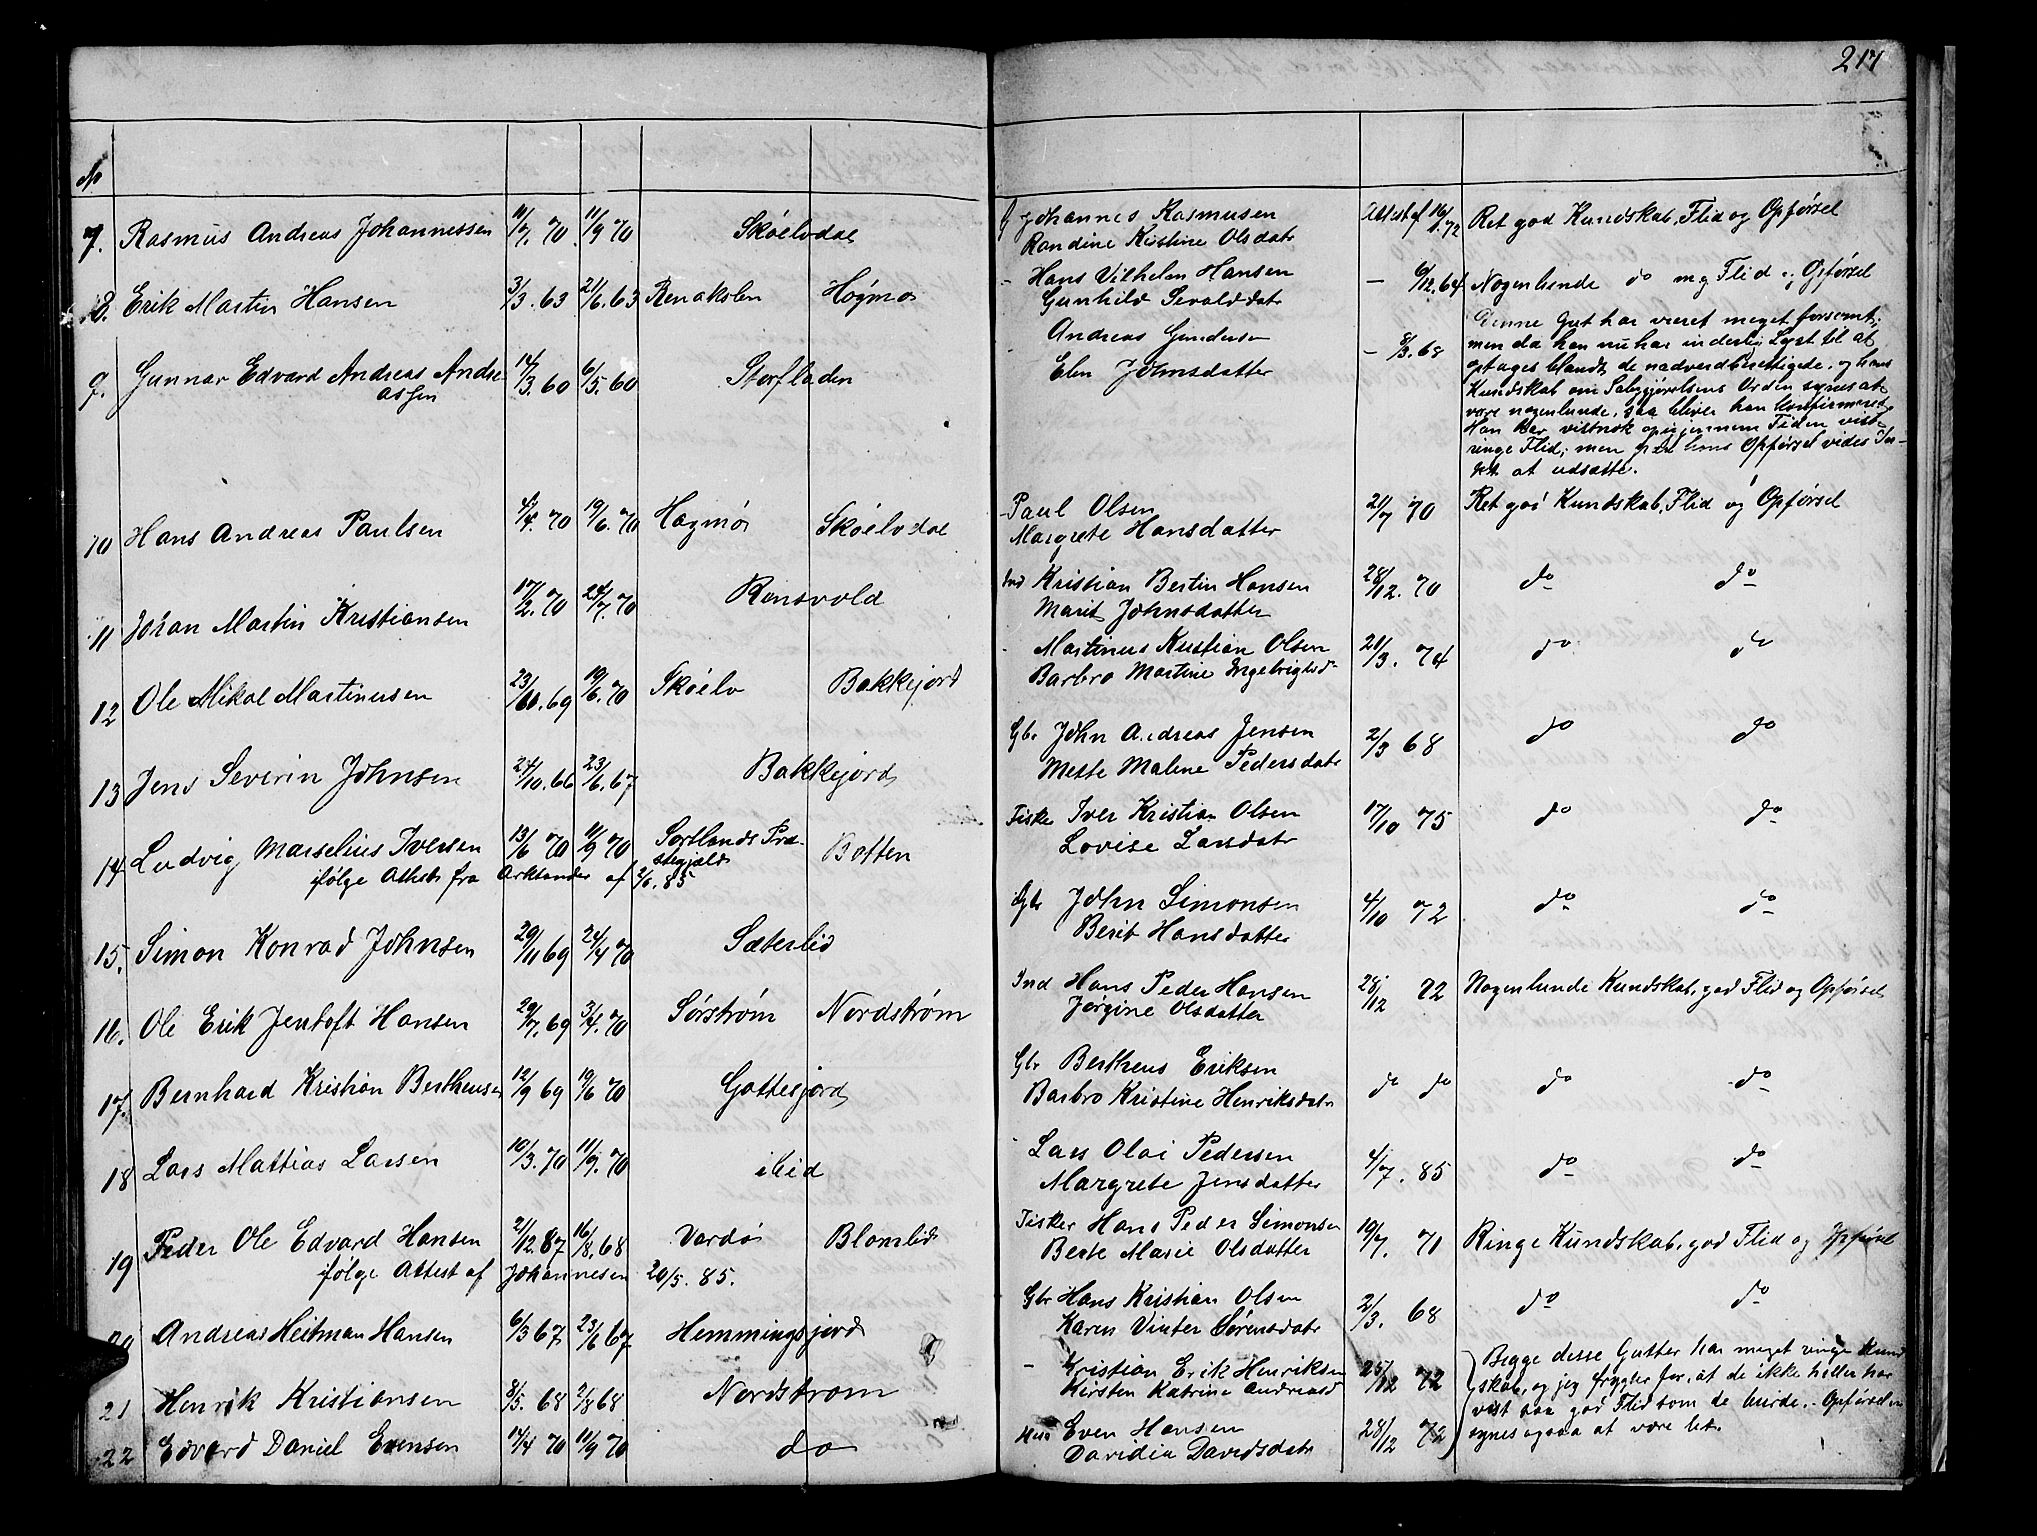 217
No
7. Rasmus Andreas Johannessen 11/7. 70 11/9 70 Skøelvdal G Johannes Rasmusen Attest af 16/1. 72 Ret god Kundskab, Flid og Opførsel
Randine Kistine Olsdatr
8. Erik Martin Hansen 3/3. 63 21/6. 63 Renakslen Høgmo - Hans Vilhelm Hansen - 6/12. 64 Nogenlunde do mg Flid og Opførsel
Gunhild Sevalddatr
9. Gunnar Edvard Andreas Andre 14/3. 60 6/5. 60 Storfladen Andreas Gundersen - 8/3. 68
assen
Elen Johnsdatter
Denne Gut har været meget forsømt,
men da han nu har inderlig Lyst til at
optages blandt de nadverdberettigede, og hans
Kundskab om Saliggjørelsens Orden synes at
være nogenlunde, saa bliver han konfirmeret.
Han har vistnok opigjennem Tiden vist
ringe Flid; men paa hans Opførsel vides In-
tet at udsætte.
10 Hans Andreas Paulsen 4/4. 70 19/6. 70 Hogmo Skøelvdal - Paul Olsen 21/7 70 Ret god Kundskab, Flid og Opførsel
Margrete Hansdatter
11 Johan Martin Kristiansen 17/2. 70 24/7. 70 Rensvold Ind Kristian Bertin Hansen 28/12. 70 do do
Marit Johnsdatter
12 Ole Mikal Martinusen 23/10. 69 19/6. 70 Skøelv Bakkejord - Martinus Kristian Olsen 21/3. 74 do do
Barbro Martine Ingebrigtsd
13 Jens Severin Johnsen 24/10. 66 23/6. 67 Bakkejord Gbr John Andreas Jensen 2/3 68 do do
Mette Malene Pedersdatr
14 Ludvig Marselius Iversen 13/6 70 11/9 70 Sortlands Præ- Botten Fisker Iver Kristian Olsen 17/10 75 do do
stegjæld
ifølge Attest fra Arktander af 2/6. 85
Lovise Larsdatr
15. Simon Konrad Johnsen 29/11 69 24/4 70 Sæterlid Gbr John Simonsen 4/10 72 do do
Berit Hansdatter
16. Ole Erik Jentoft Hansen 29/7. 69 3/4. 70 Sørstrøm Nordstrøm Ind Hans Peder Hansen 28/12 72 Nogenlunde Kundskab, god Flid og Opførsel
Jørgine Olsdatter
17. Bernhard Kristian Bertheusen 12/9 69 19/6 70 Gottesjord Gbr Bertheus Eriksen do do do do
Barbro Kristine Henriksdatr
18 Lars Mattias Larsen 10/3. 70 11/9. 70 ibid - Lars Olai Pedersen 4/7. 85 do do
Margrete Jensdatter
19 Peder Ole Edvard Hansen 21/12. 67 16/8. 68 Vardø Blomlid Fisker Hans Peder Simonsen 19/7. 71 Ringe Kundskab, god Flid og Opførsel
ifølge Attest af Johannesen 20/5. 85.
Berte Marie Olsdatter
20 Andreas Heitman Hansen 6/3 67 23/6 67 Hemmingsjord Gbr Hans Kristian Olsen 2/3. 68 do do
Karen Vinter Sørensdatr
21 Henrik Kristiansen 8/5. 68 2/8 68 Nordstrøm - Kristian Erik Henriksen 28/12 72
Kirsten Katrine Andreasd
22 Edvard Daniel Evensen 14/4 70 11/9 70 do Even Hansen 28/12 72
Daridia Davidsdatr
Begge desse Gutter har meget ringe Kund
skab, og jeg frygter for, at de ikke heller har
vist saa god Flid som de burde. - Opførselen
synes ogsaa at være let.